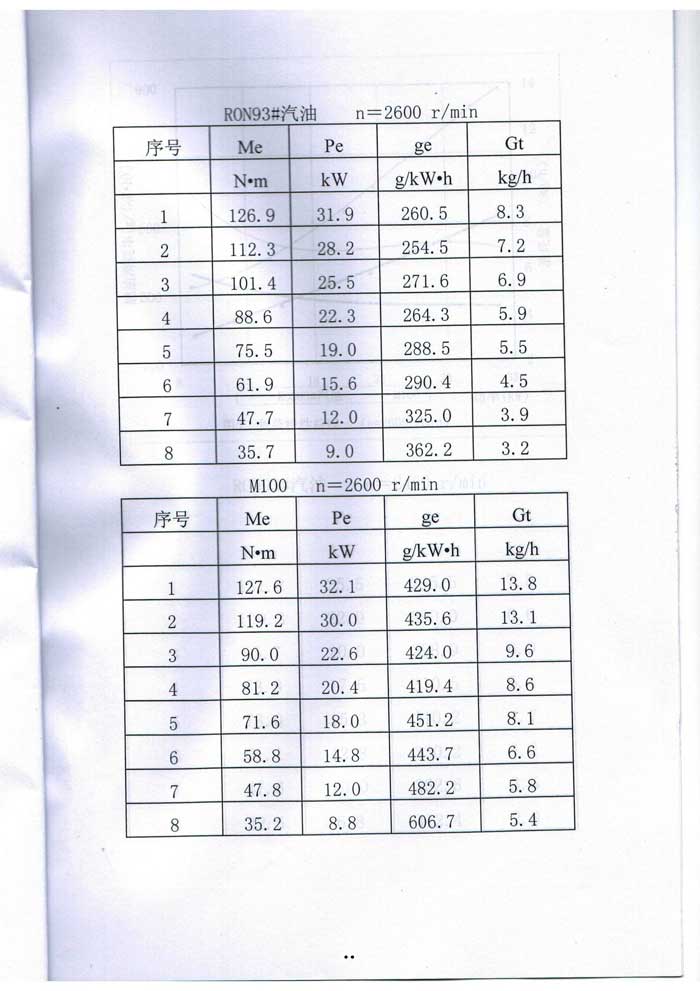 RON93#汽油 n=2600 r/min
序号 Me Pe ge Gt
N•m kW g/kW•h kg/h
1 126.9 31.9 260.5 8.3
2 112.3 28.2 254.5 7.2
3 101.4 25.5 271.6 6.9
4 88.6 22.3 264.3 5.9
5 75.5 19.0 288.5 5.5
6 61.9 15.6 290.4 4.5
7 47.7 12.0 325.0 3.9
8 35.7 9.0 362.2 3.2
M100 n=2600 r/min
序号 Me Pe ge Gt
N•m kW g/kW•h kg/h
1 127.6 32.1 429.0 13.8
2 119.2 30.0 435.6 13.1
3 90.0 22.6 424.0 9.6
4 81.2 20.4 419.4 8.6
5 71.6 18.0 451.2 8.1
6 58.8 14.8 443.7 6.6
7 47.8 12.0 482.2 5.8
8 35.2 8.8 606.7 5.4